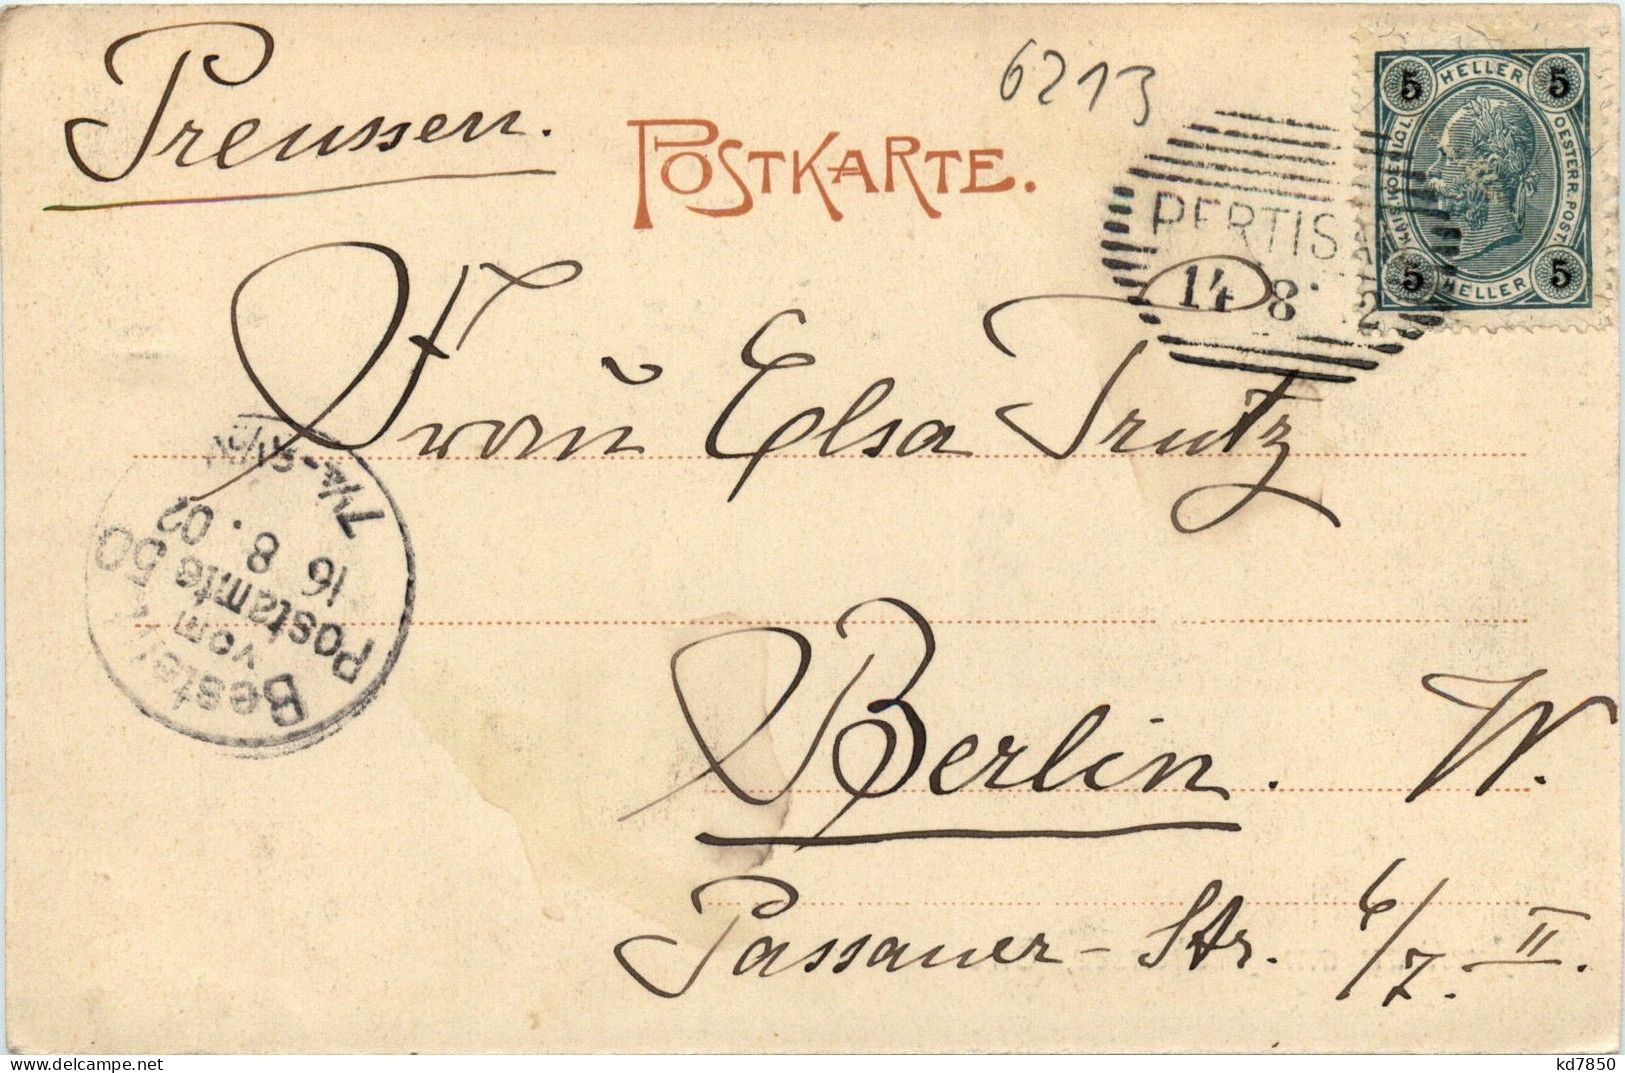 Preussen.
6213
POSTKARTE.
5 HELLER 5
KAIS. KOENIGL. OESTERR. POST.
5 HELLER 5
PERTISA
14 8 2
Frau Elsa Trutz
Bestellt
vom
Postamte 50
16 8. 02
7¼-
Berlin. W.
Passauer-Str. 6/7. II.
kd7850